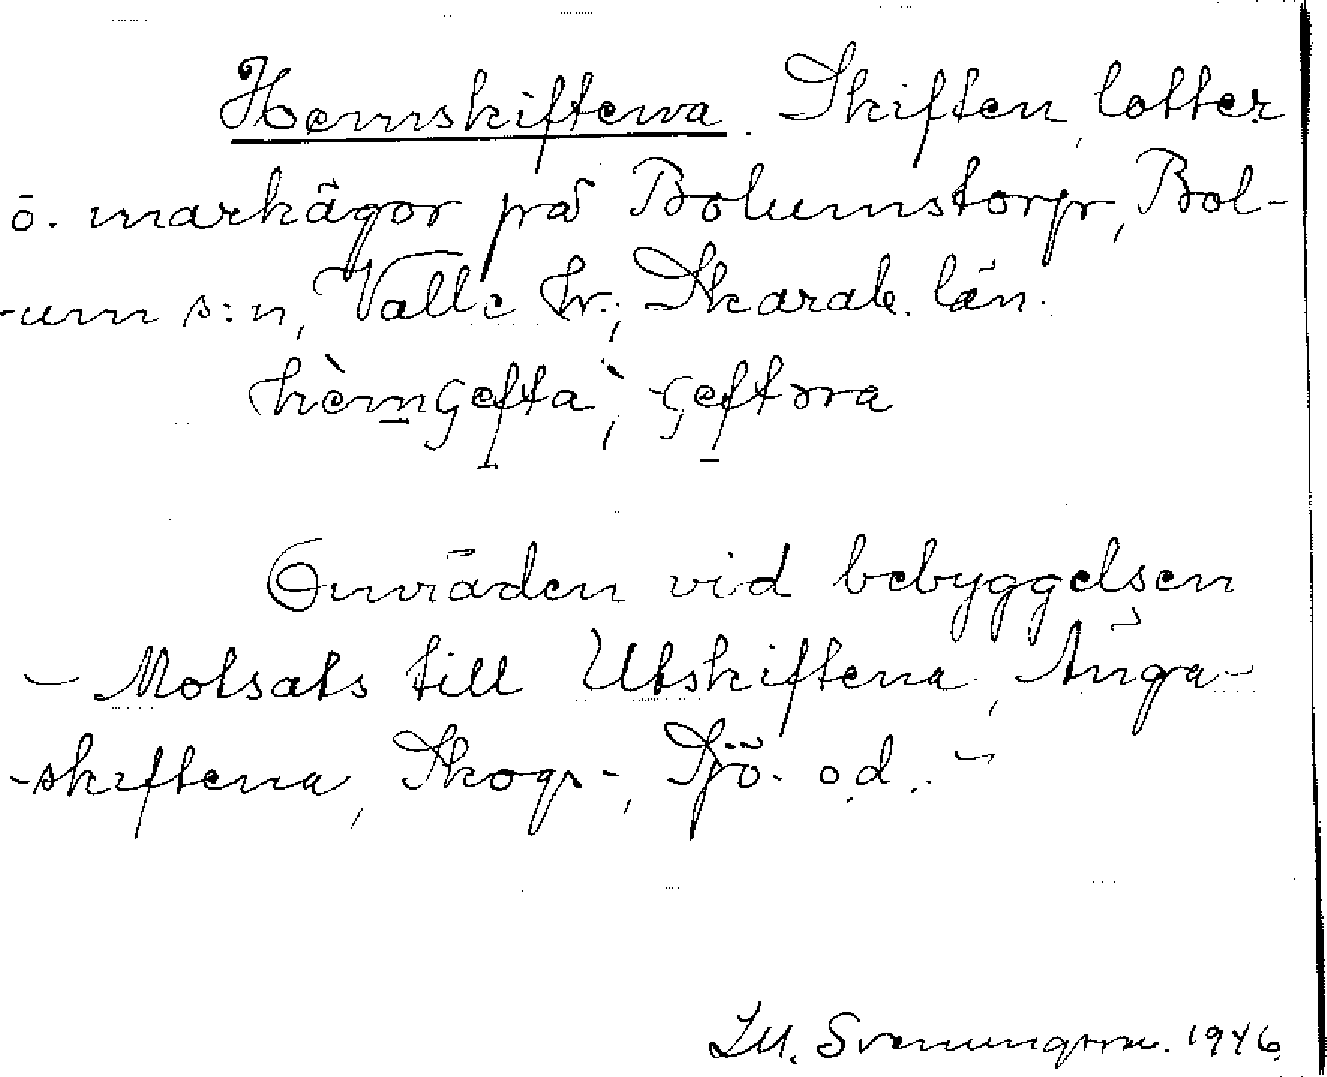 Hemskiftena. Skiften, lotter
o. markägor på Bolumstorp, Bol-
-um s:n, Valle hr; Skarab. län.
hèmçefta, -çeftəra
Områden vid bebyggelsen
- Motsats till Utskiftena, Änga-
-skiftena, Skogs-, Sjö- o.d. -
Svenungsson. 1946.